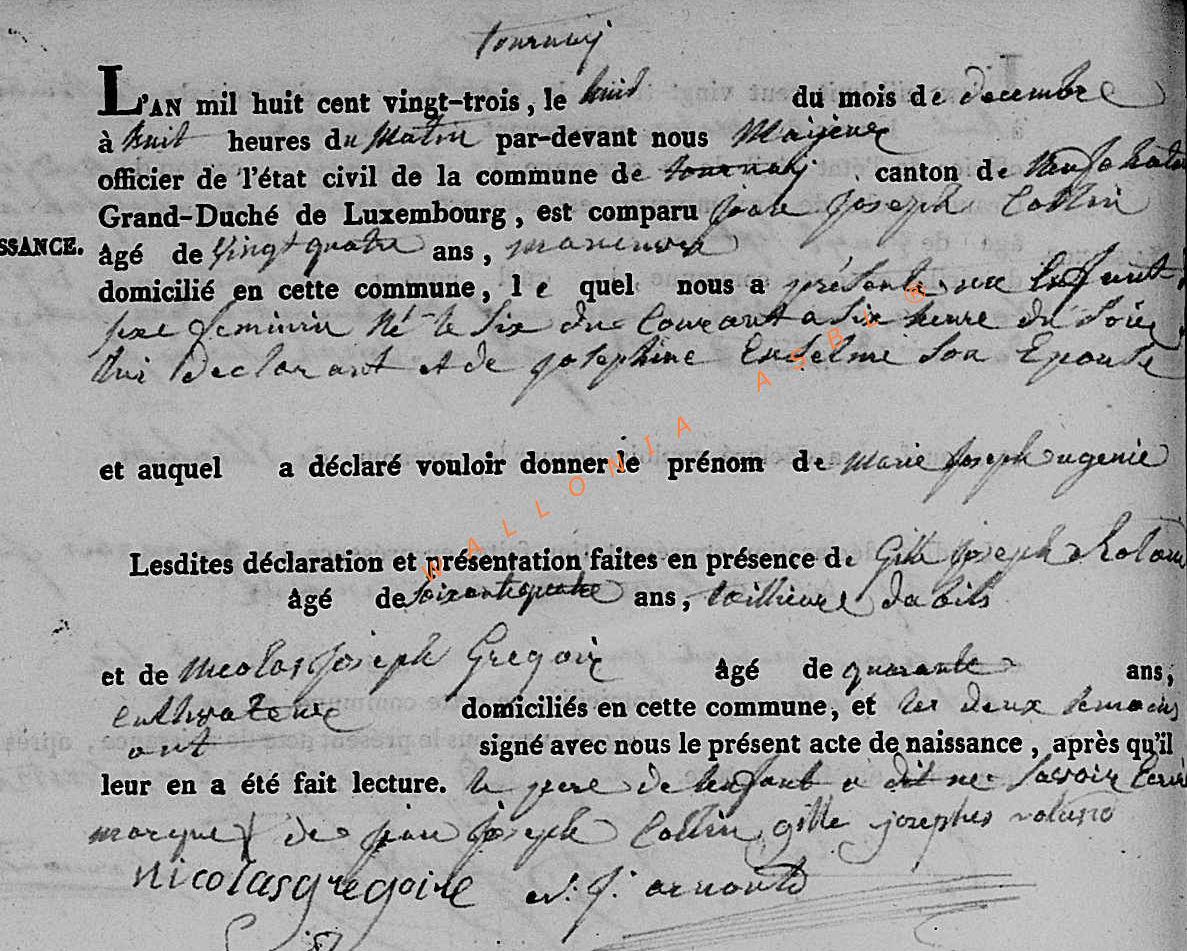 tournay
L'AN mil huit cent vingt-trois, le huit du mois de decembre
à huit heures du Matin par-devant nous Mayeur
officier de l'état civil de la commune de tournay, canton de
Grand-Duché de Luxembourg, est comparu jean joseph Collin
SSANCE.
âgé de vingt quatre ans,
domicilié en cette commune, le quel nous a présenté un Enfant
sexe feminin Né le six du Courant a six heure du Soir
lui Declarant et de josephine Enselme Son Epouse
et auquel a déclaré vouloir donner le prénom de Marie joseph ugenie
Lesdites déclaration et présentation faites en présence de Gille joseph
âgé de soixantequatre ans, tailleure dabits
et de Nicolas joseph Gregoire âgé de quarante ans,
cultivateure domiciliés en cette commune, et les deux temoins
ont signé avec nous le présent acte de naissance, après qu'il
leur en a été fait lecture. le pere de lenfant a dit ne savoir Ecrire
marque de jean joseph Collin gille josephe
nicolas gregoire arnould
WALLONIA ASBL ®